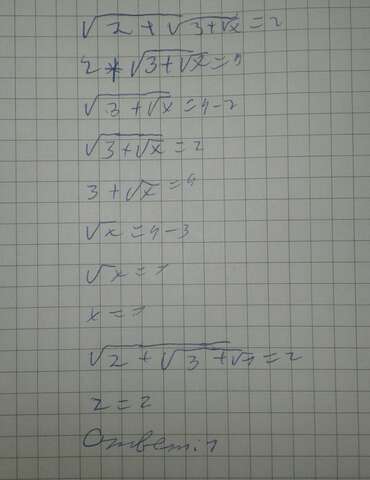 √(2 + √(3+√x)) = 2
2 + √(3+√x) = 4
√(3+√x) = 4-2
√(3+√x) = 2
3 + √x = 4
√x = 4-3
√x = 1
x = 1
√(2 + √(3+√1)) = 2
2 = 2
Ответ: 1